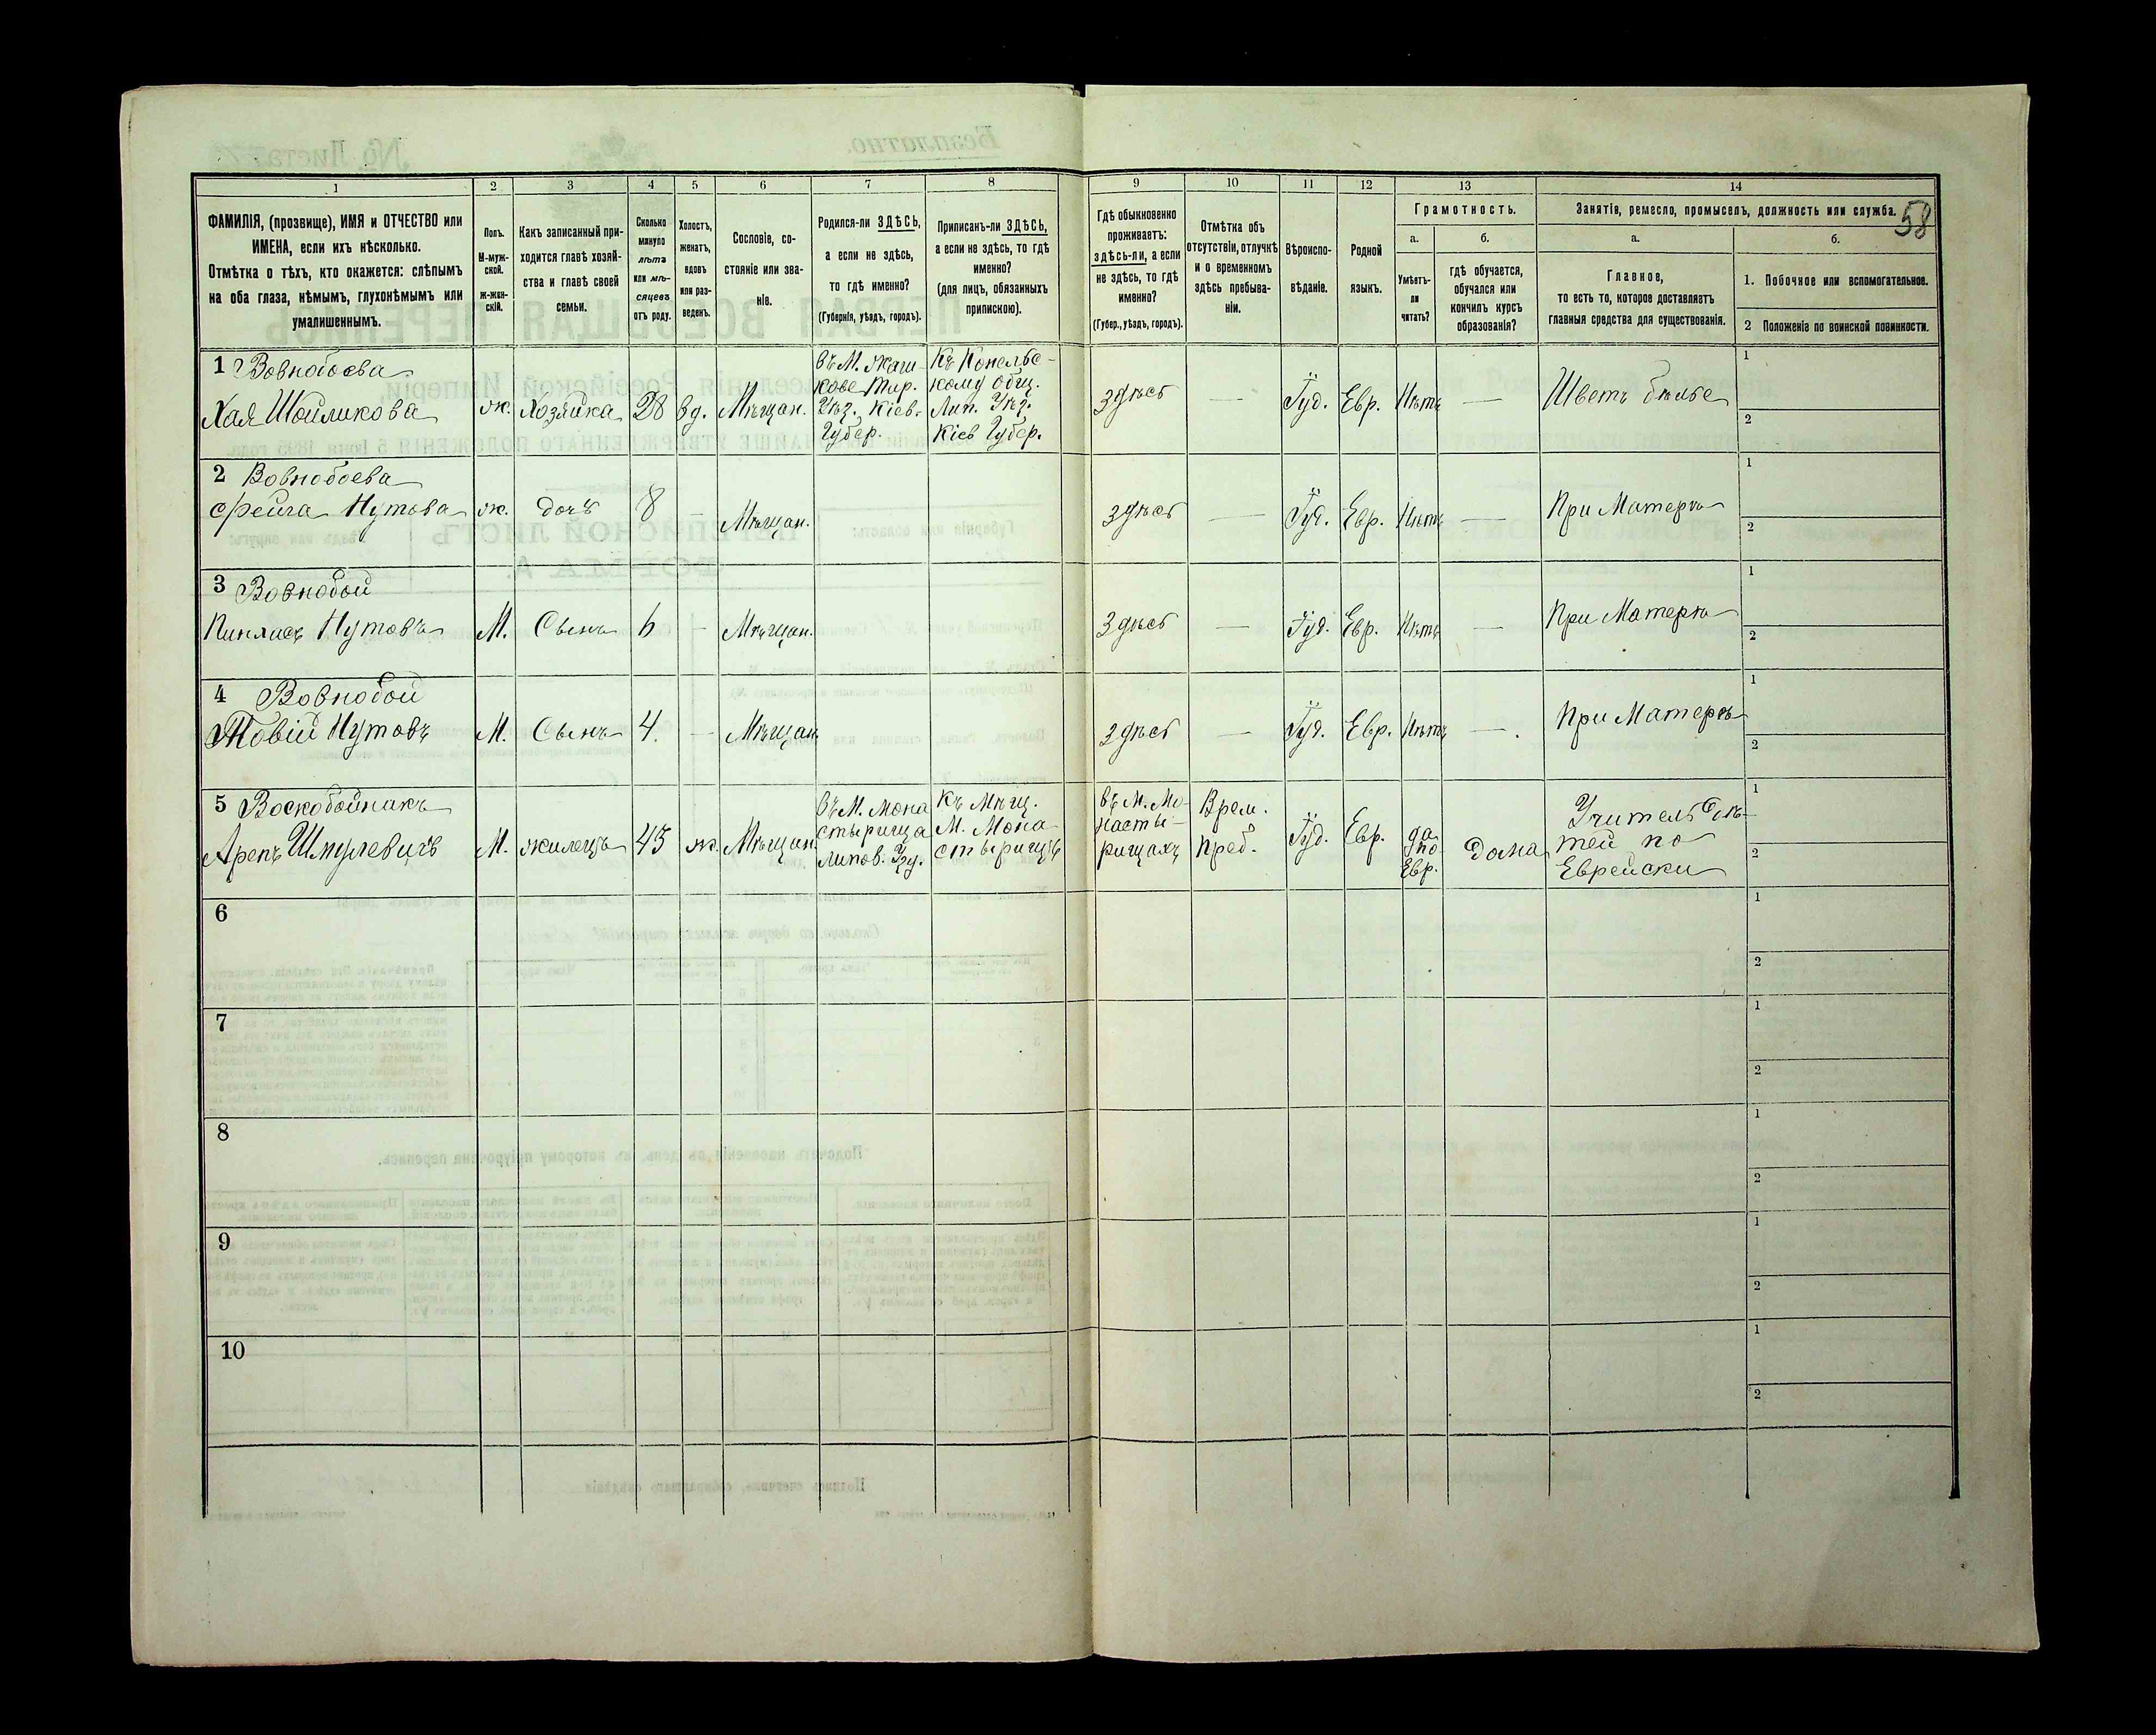 58
1 2 3 4 5 6 7 8 9 10 11 12 13 14
ФАМИЛІЯ, (прозвище), ИМЯ и ОТЧЕСТВО или
ИМЕНА, если ихъ нѣсколько.
Отмѣтка о тѣхъ, кто окажется: слѣпымъ
на оба глаза, нѣмымъ, глухонѣмымъ или
умалишеннымъ.
Полъ.
М-муж-
ской.
ж-жен-
скій.
Какъ записанный при-
ходится главѣ хозяй-
ства и главѣ своей
семьи.
Сколько
минуло
лѣтъ
или мѣ-
сяцевъ
отъ роду.
Холостъ,
женатъ,
вдовъ
или раз-
веденъ.
Сословіе, со-
стояніе или зва-
ніе.
Родился-ли ЗДѢСЬ,
а если не здѣсь,
то гдѣ именно?
(Губернія, уѣздъ, городъ).
Приписанъ-ли ЗДѢСЬ,
а если не здѣсь, то гдѣ
именно?
(для лицъ, обязанныхъ
припискою).
Гдѣ обыкновенно
проживаетъ:
здѣсь-ли, а если
не здѣсь, то гдѣ
именно?
(Губер., уѣздъ, городъ).
Отмѣтка объ
отсутствіи, отлучкѣ
и о временномъ
здѣсь пребыва-
ніи.
Вѣроиспо-
вѣданіе.
Родной
языкъ.
Грамотность.
а.
Умѣетъ-
ли
читать?
б.
гдѣ обучается,
обучался или
кончилъ курсъ
образованія?
Занятія, ремесло, промыселъ, должность или служба.
а.
Главное,
то есть то, которое доставляетъ
главныя средства для существованія.
б.
1. Побочное или вспомогательное.
2 Положеніе по воинской повинности.
1 Вовнобоева
Хая Шойликова
ж.
Хозяйка
28
вд.
Мѣщан.
въ М. Жаш-
кове Тар.
Уѣз. Кіев.
Губер.
Къ Конельс-
кому общ.
Лип. Уѣз.
Кіев Губер.
здѣсь
—
Іуд.
Евр.
Нѣтъ
—
Шветъ бѣлье
1
2
2 Вовнобоева
Фейга Нутова
ж.
дочь
8
—
Мѣщан.
здѣсь
—
Іуд.
Евр.
Нѣтъ
—
При Матерѣ
1
2
3 Вовнобой
Пинхасъ Нутовъ
М.
Сынъ
6
—
Мѣщан.
здѣсь
—
Іуд.
Евр.
Нѣтъ
—
При Матерѣ
1
2
4 Вовнобой
Товій Нутовъ
М.
Сынъ
4.
—
Мѣщан
здѣсь
—
Іуд.
Евр.
Нѣтъ
—.
При Матерѣ
1
2
5 Воскобойникъ
Аренъ Шмулевичъ
М.
жилецъ
43
ж.
Мѣщан.
въ М. Мона
стырища
Липов. Уѣз.
Къ Мѣщ.
М. Мона
стырищъ
въ М. Мо-
насты-
рищахъ
Врем.
преб.
Іуд.
Евр.
да
по
Евр.
дома
Учитель дѣ-
тей по
Еврейски
1
2
6
1
2
7
1
2
8
1
2
9
1
2
10
1
2